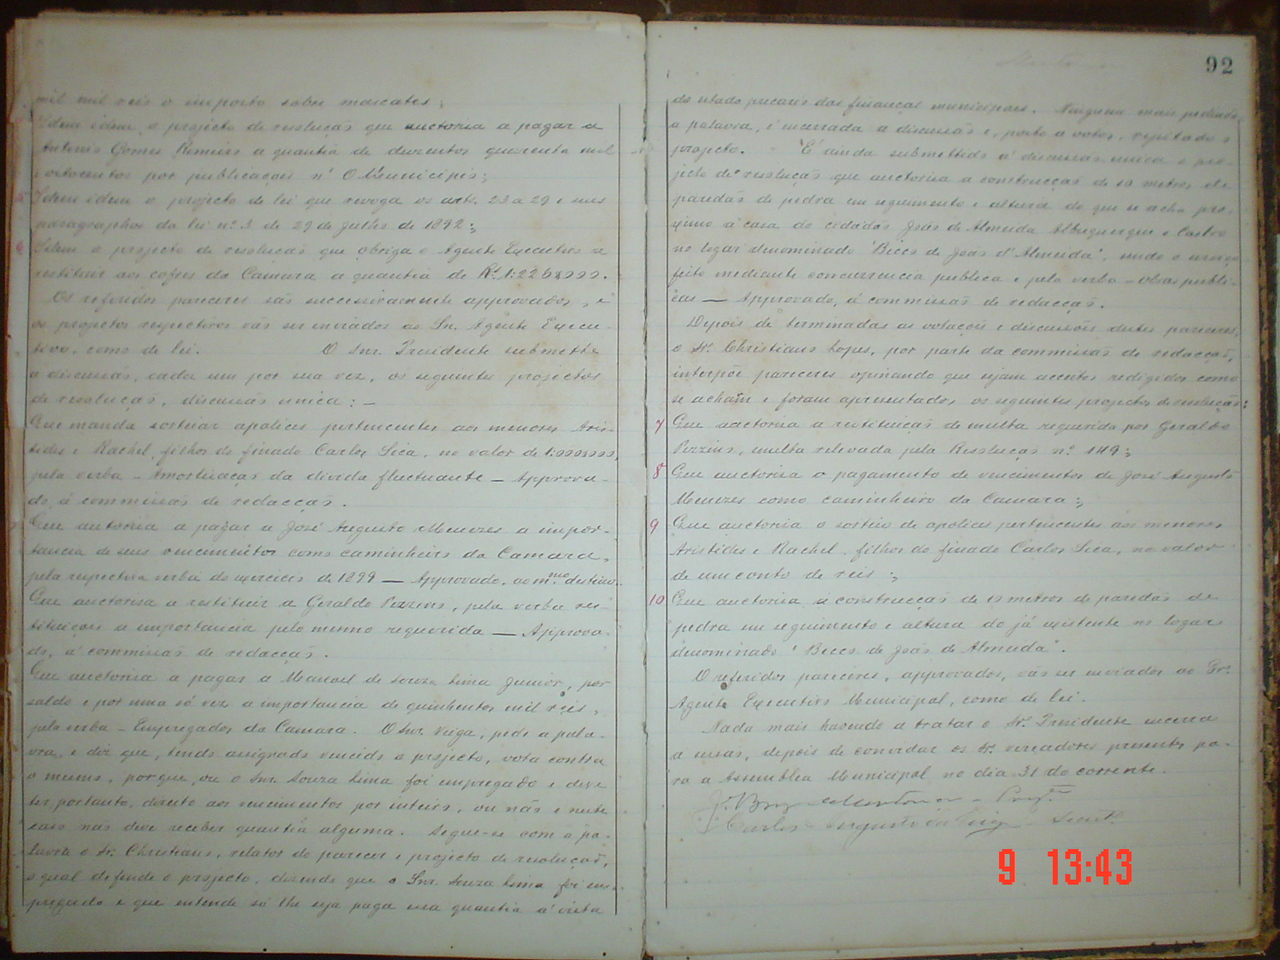 mil mil reis o imposto sobre mascates;
Idem idem, o projecto de resolução que auctorisa a pagar a
Antonio Gomes Remiers a quantia de duzentos quarenta mil
e oitocentos por publicações n' O Municipio;
Idem idem o projecto de lei que revoga os art. 23 a 29 e seus
paragraphos da lei nº 3 de 29 de Julho de 1892;
Idem o projecto de resolução que obriga o Agente Executivo a
restituir aos cofres da Camara a quantia de
Os referidos pareceres são successivamente approvados, e
os projectos respectivos vão ser enviados ao Snr. Agente Execu-
tivo, como de lei. O Snr. Presidente submette
a discussão, cada um por sua vez, os seguintes projectos
de resolução, discussão unica: —
Que manda sortear apolices pertencentes aos menores Aris-
tides e Rachel, filhos do finado Carlos Sica, no valor de 1:000$000,
pela verba – Amortisação da divida fluctuante – Approva-
do, á commissão de redacção.
Que autorisa a pagar a José Augusto Menezes a impor-
tancia de seus vencimentos como caminheiro da Camara,
pela respectiva verba do exercicio de 1899 — Approvado, ao m.mo destino.
Que auctorisa a restituir a Geraldo Pezzins, pela verba res-
tituições a importancia pelo mesmo requerida — Approva-
do, á commissão de redacção.
Que auctorisa a pagar a Manoel de Souza Lima Junior, por
saldo e por uma só vez a importancia de quinhentos mil reis,
pela verba – Empregados da Camara. O Snr. Veiga, pede a pala-
vra, e diz que, tendo assignado vencido o projecto, vota contra
o mesmo, porque, ou o Snr. Souza Lima foi empregado e deve
ter, portanto, direito aos vencimentos por inteiro, ou não e neste
caso não deve receber quantia alguma. Segue-se com a pa-
lavra o Sr. Christiano, relator do parecer e projecto de resolução,
o qual defende o projecto, dizendo que o Snr. Souza Lima foi em-
pregado e que entende só lhe seja paga essa quantia á vista
92
do estado precario das finanças municipaes. Ninguem mais pedindo
a palavra, é encerrada a discussão e, posto a votos, rejeitado o
projecto. É ainda submettido á discussão unica o pro-
jecto de resolução que auctorisa a construcção de 19 metros de
paredão de pedra em seguimento e altura do que se acha pro-
ximo á casa do cidadão João de Almeida Albuquerque e Castro
no logar denominado "Becco de João d'Almeida", sendo o serviço
feito mediante concurrencia publica e pela verba – Obras publi-
cas — Approvado, á commissão de redacção.
Depois de terminadas as votações e discussões destes pareceres,
o Sr. Christiano Lopes, por parte da commissão de redacção,
interpõe pareceres opinando que sejam acceitos redigidos como
se acham e foram apresentados os seguintes projectos de resolução:
7 Que auctorisa a restituição de multa requerida por Geraldo
Pezzins, multa relevada pela Resolução nº 149;
8 Que auctorisa o pagamento de vencimentos de José Augusto
Menezes como caminheiro da Camara;
9 Que auctorisa o sorteio de apolices pertencentes aos menores
Aristides e Rachel, filhos do finado Carlos Sica, no valor
de um conto de reis;
10 Que auctorisa a construcção de 19 metros de paredão de
pedra em seguimento e altura do já existente no logar
denominado "Becco de João de Almeida".
O referidos pareceres, approvados, vão ser enviados ao Sr.
Agente Executivo Municipal, como de lei.
Nada mais havendo a tratar o Sr. Presidente encerra
a sessão, depois de convidar os Sr. vereadores presentes pa-
ra a Assemblea Municipal no dia 31 do corrente.
Carlos Augusto Secret.
9 13:43